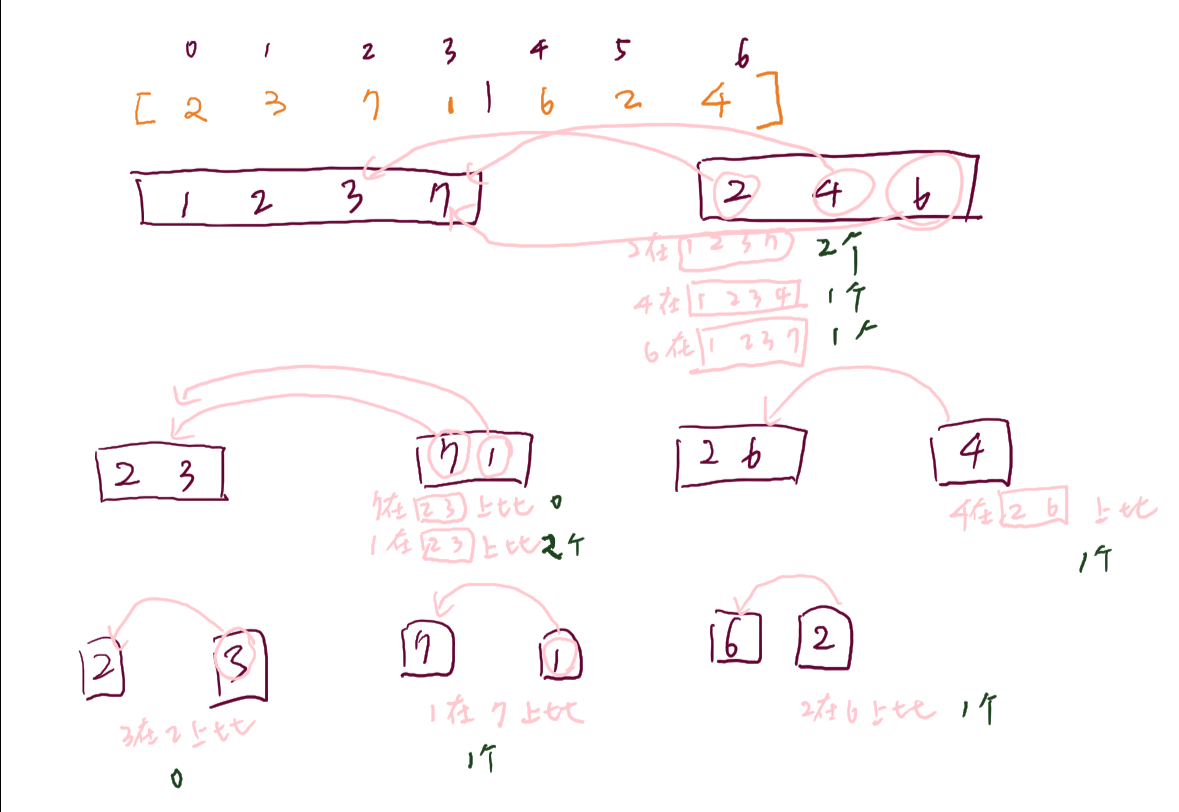 0 1 2 3 4 5 6
[ 2 3 7 1 | 6 2 4 ]
1 2 3 7 2 4 6
2在 1 2 3 7 2个
4在 1 2 3 4 1个
6在 1 2 3 7 1个
2 3 7 1 2 6 4
7在 2 3 上比 0
1在 2 3 上比 2个
4在 2 6 上比
1个
2 3 7 1 6 2
3在2上比
0
1在7上比
1个
2在6上比 1个